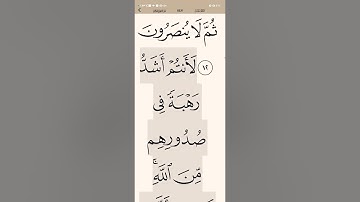 ثُمَّ لَا يُنصَرُونَ
١٢ لَأَنتُمْ أَشَدُّ
رَهْبَةً فِى
صُدُورِهِم
مِّنَ ٱللَّهِۚ